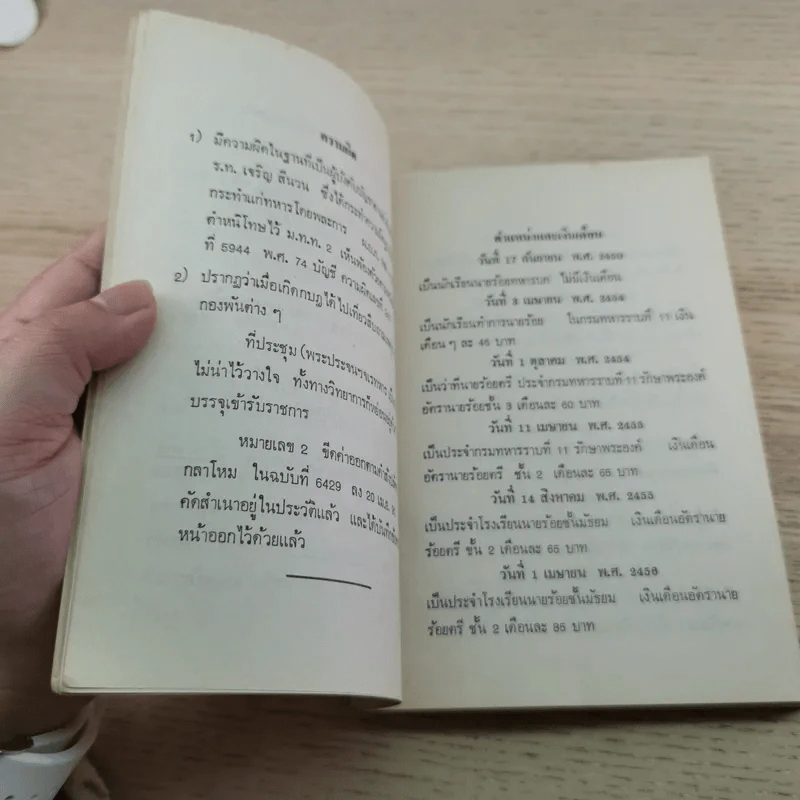 ความผิด
1) มีความผิดในฐานที่เป็นผู้บังคับบัญชา
ร.ท. เจริญ สืนวน ซึ่งได้กระทำ
กระทำแก่ทหารโดยพละการ
ตำหนิโทษไว้ ม.ท.ท. 2 เห็นพ้องด้วย
ที่ 5944 พ.ศ. 74 บัญชี ความผิด
2) ปรากฏว่าเมื่อเกิดกบฏได้ไปเที่ยว
กองพันต่าง ๆ
ที่ประชุม (พระประจนฯจเรทหาร
ไม่น่าไว้วางใจ ทั้งทางวิทยาการก็
บรรจุเข้ารับราชการ
หมายเลข 2 ขีดค่าออกตามคำสั่ง
กลาโหม ในฉบับที่ 6429 ลง 20 เม.ย.
คัดสำเนาอยู่ในประวัติแล้ว และได้บันทึก
หน้าออกไว้ด้วยแล้ว
ตำแหน่งและเงินเดือน
วันที่ 17 กันยายน พ.ศ. 2450
เป็นนักเรียนนายร้อยทหารบก ไม่มีเงินเดือน
วันที่ 3 เมษายน พ.ศ. 2454
เป็นนักเรียนทำการนายร้อย ในกรมทหารราบที่ 11 เงิน
เดือน ๆ ละ 45 บาท
วันที่ 1 ตุลาคม พ.ศ. 2454
เป็นว่าที่นายร้อยตรี ประจำกรมทหารราบที่ 11 รักษาพระองค์
อัตรานายร้อยชั้น 3 เดือนละ 60 บาท
วันที่ 11 เมษายน พ.ศ. 2455
เป็นประจำกรมทหารราบที่ 11 รักษาพระองค์ เงินเดือน
อัตรานายร้อยตรี ชั้น 2 เดือนละ 65 บาท
วันที่ 14 สิงหาคม พ.ศ. 2455
เป็นประจำโรงเรียนนายร้อยชั้นมัธยม เงินเดือนอัตรานาย
ร้อยตรี ชั้น 2 เดือนละ 65 บาท
วันที่ 1 เมษายน พ.ศ. 2456
เป็นประจำโรงเรียนนายร้อยชั้นมัธยม เงินเดือนอัตรานาย
ร้อยตรี ชั้น 2 เดือนละ 85 บาท